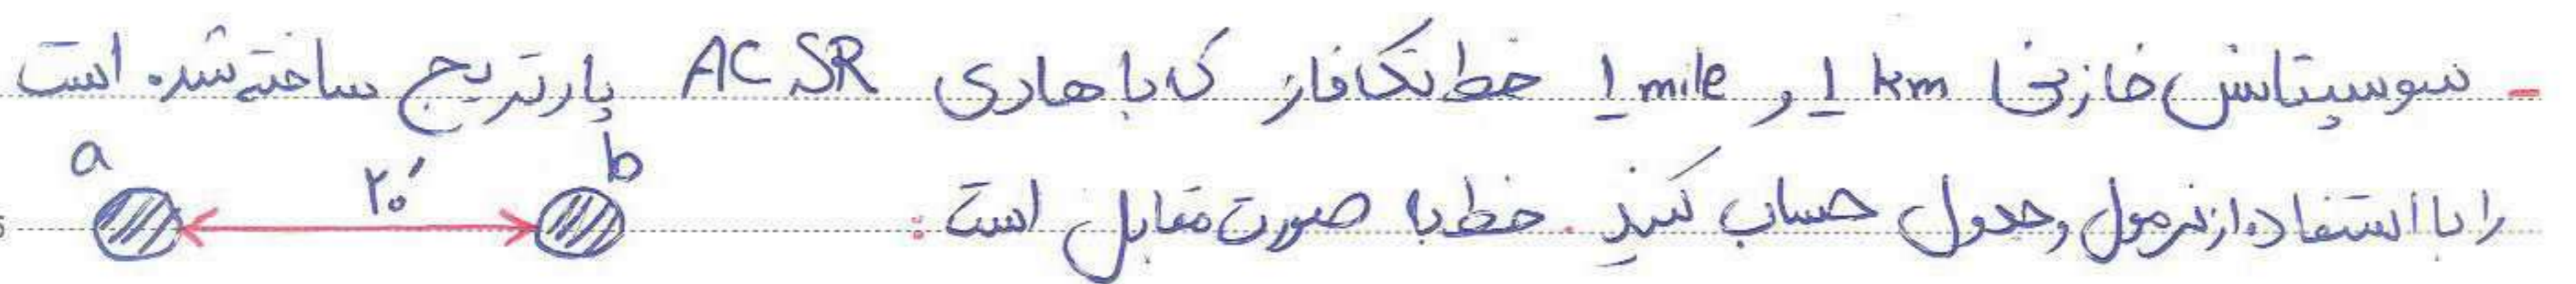 - سوسپتانس خازنی 1 km و 1 mile خط تکفاز که با هادی ACSR پارتریج ساخته شده است
را با استفاده از فرمول و جدول حساب کنید. خط به صورت مقابل است:
a ۲۰′ b